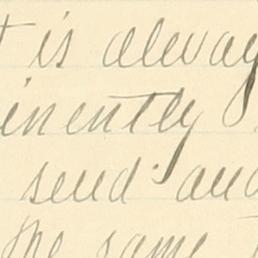 t is alway
inently
send and
the same